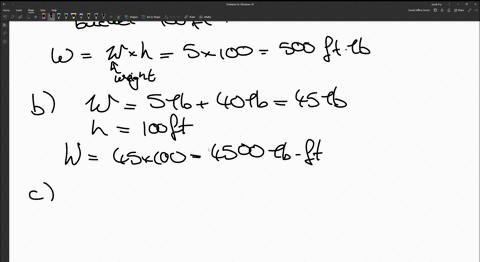 bucket 100ft
W = W×h = 5×100 = 500 ft·lb
weight
b) W = 5lb + 40lb = 45lb
h = 100ft
W = 45×100 = 4500 lb-ft
c)